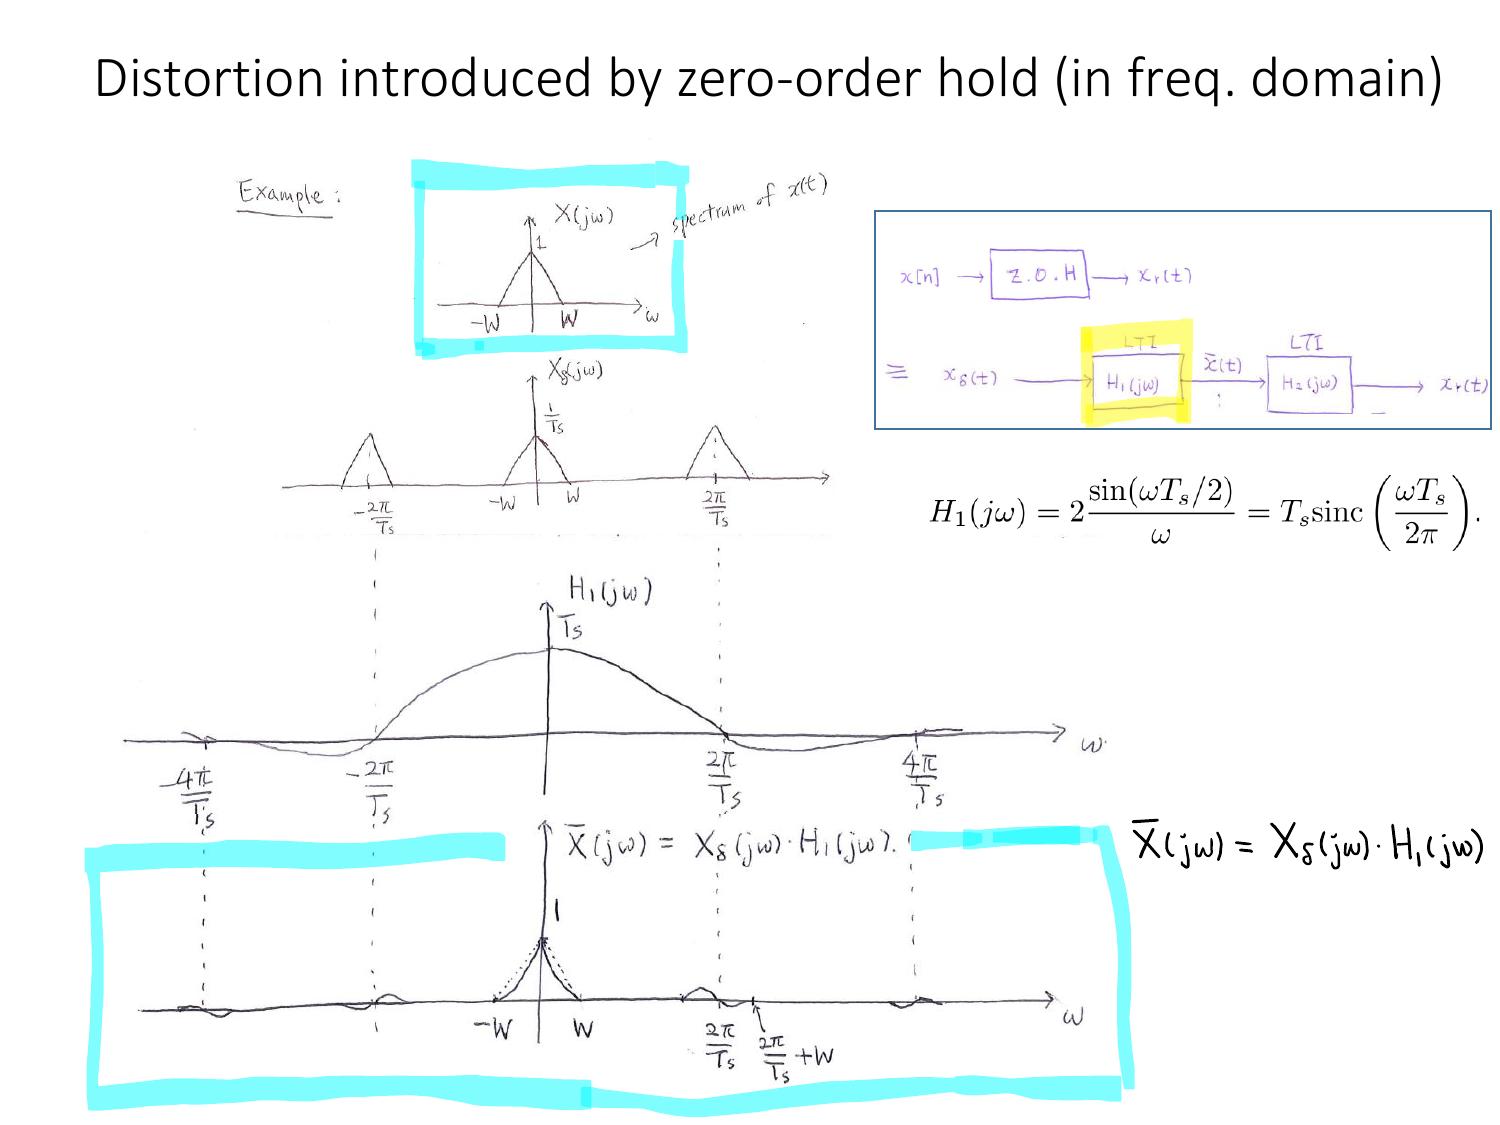 Distortion introduced by zero-order hold (in freq. domain)
Example :
X(jω)
→ spectrum of x(t)
1
-W W ω
x[n] → Z.O.H → xᵣ(t)
LTI LTI
≡ x_δ(t) → H₁(jω) x̄(t) → H₂(jω) → xᵣ(t)
X_δ(jω)
1/Ts
-2π/Ts -W W 2π/Ts
H₁(jω) = 2 sin(ωTₛ/2)/ω = Tₛsinc(ωTₛ/2π).
H₁(jω)
Ts
ω
-4π/Ts -2π/Ts 2π/Ts 4π/Ts
X̄(jω) = X_δ(jω)·H₁(jω).
X̄(jω) = X_δ(jω)·H₁(jω)
1
-W W 2π/Ts 2π/Ts +W ω